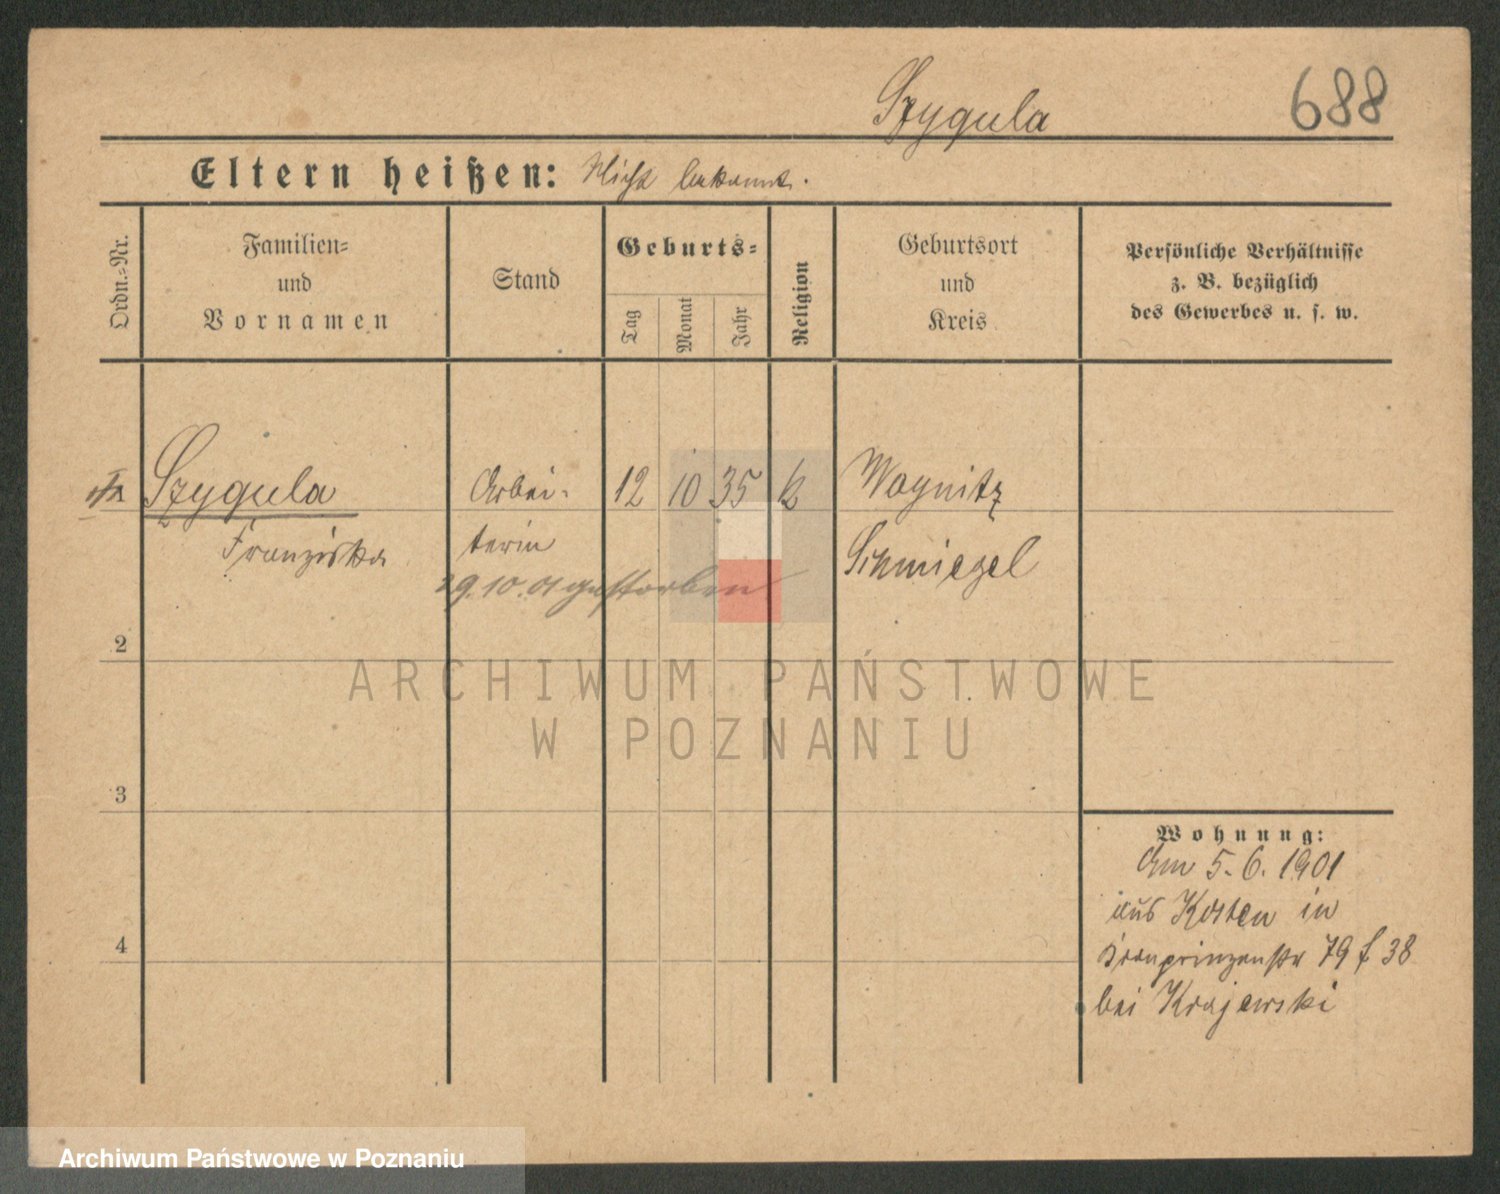 Szygula
688
Eltern heißen: Nicht bekannt.
Ordn.=Nr.
Familien=
und
Vornamen
Stand
Geburts=
Tag
Monat
Jahr
Religion
Geburtsort
und
Kreis
Persönliche Verhältnisse
z. B. bezüglich
des Gewerbes u. s. w.
Szygula
Franziska
Arbei-
terin
12 10 35 k
Woynitz
Schmiegel
29.10.01 gestorben
2
3
4
Wohnung:
Am 5.6.1901
aus Kosten in
Kronprinzenstr 79 f 38
bei Krajewski
ARCHIWUM PAŃSTWOWE
W POZNANIU
Archiwum Państwowe w Poznaniu